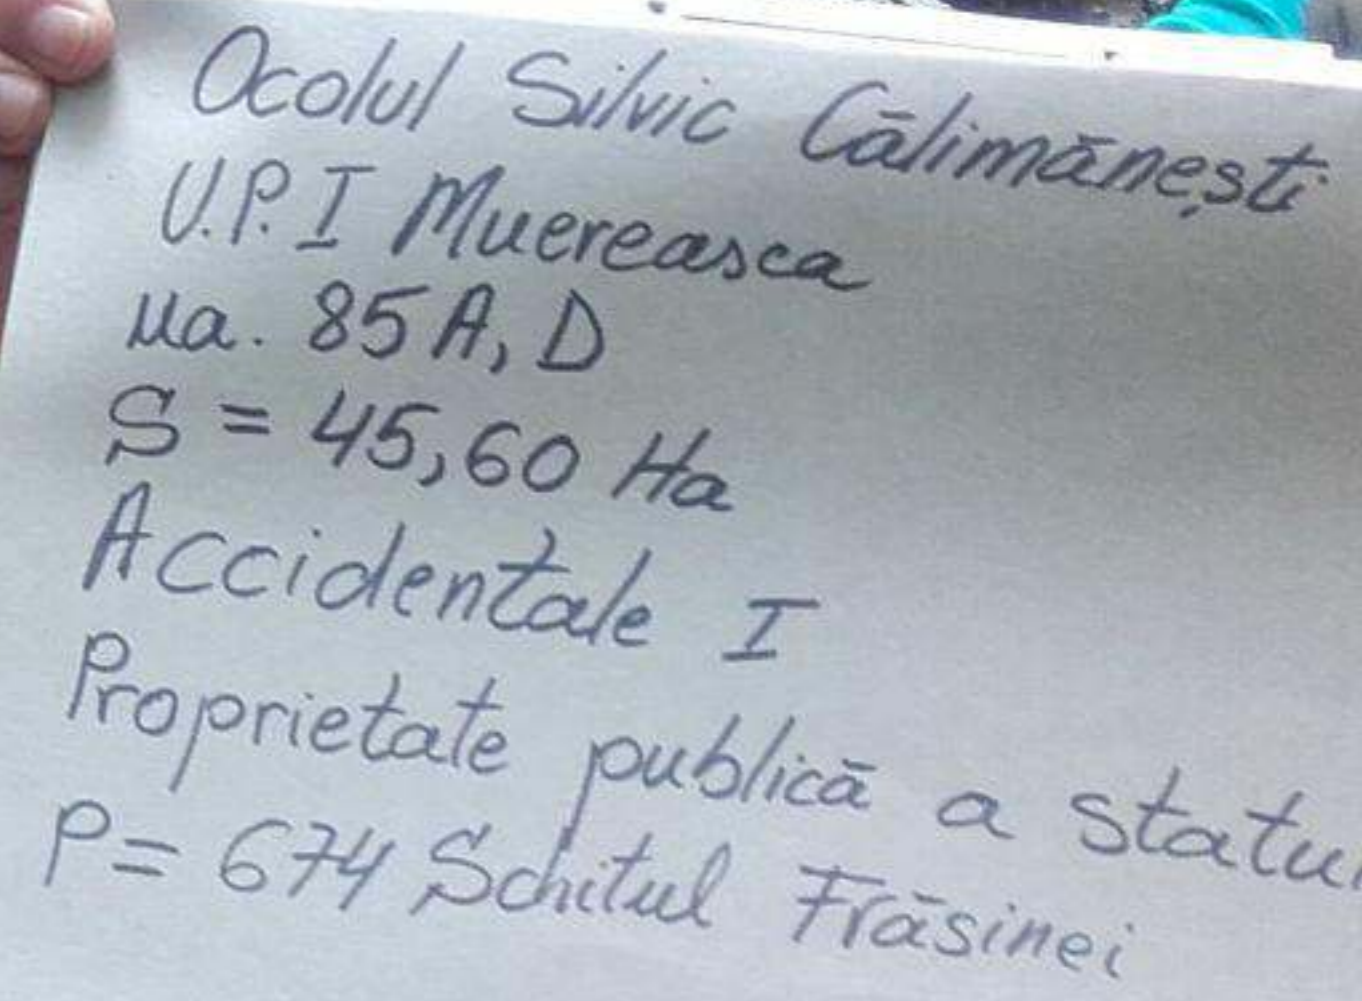 Ocolul Silvic Călimănești
U.P. I Muereasca
ua. 85 A, D
S = 45,60 Ha
Accidentale I
Proprietate publică a statu
P = 674 Schitul Frăsinei